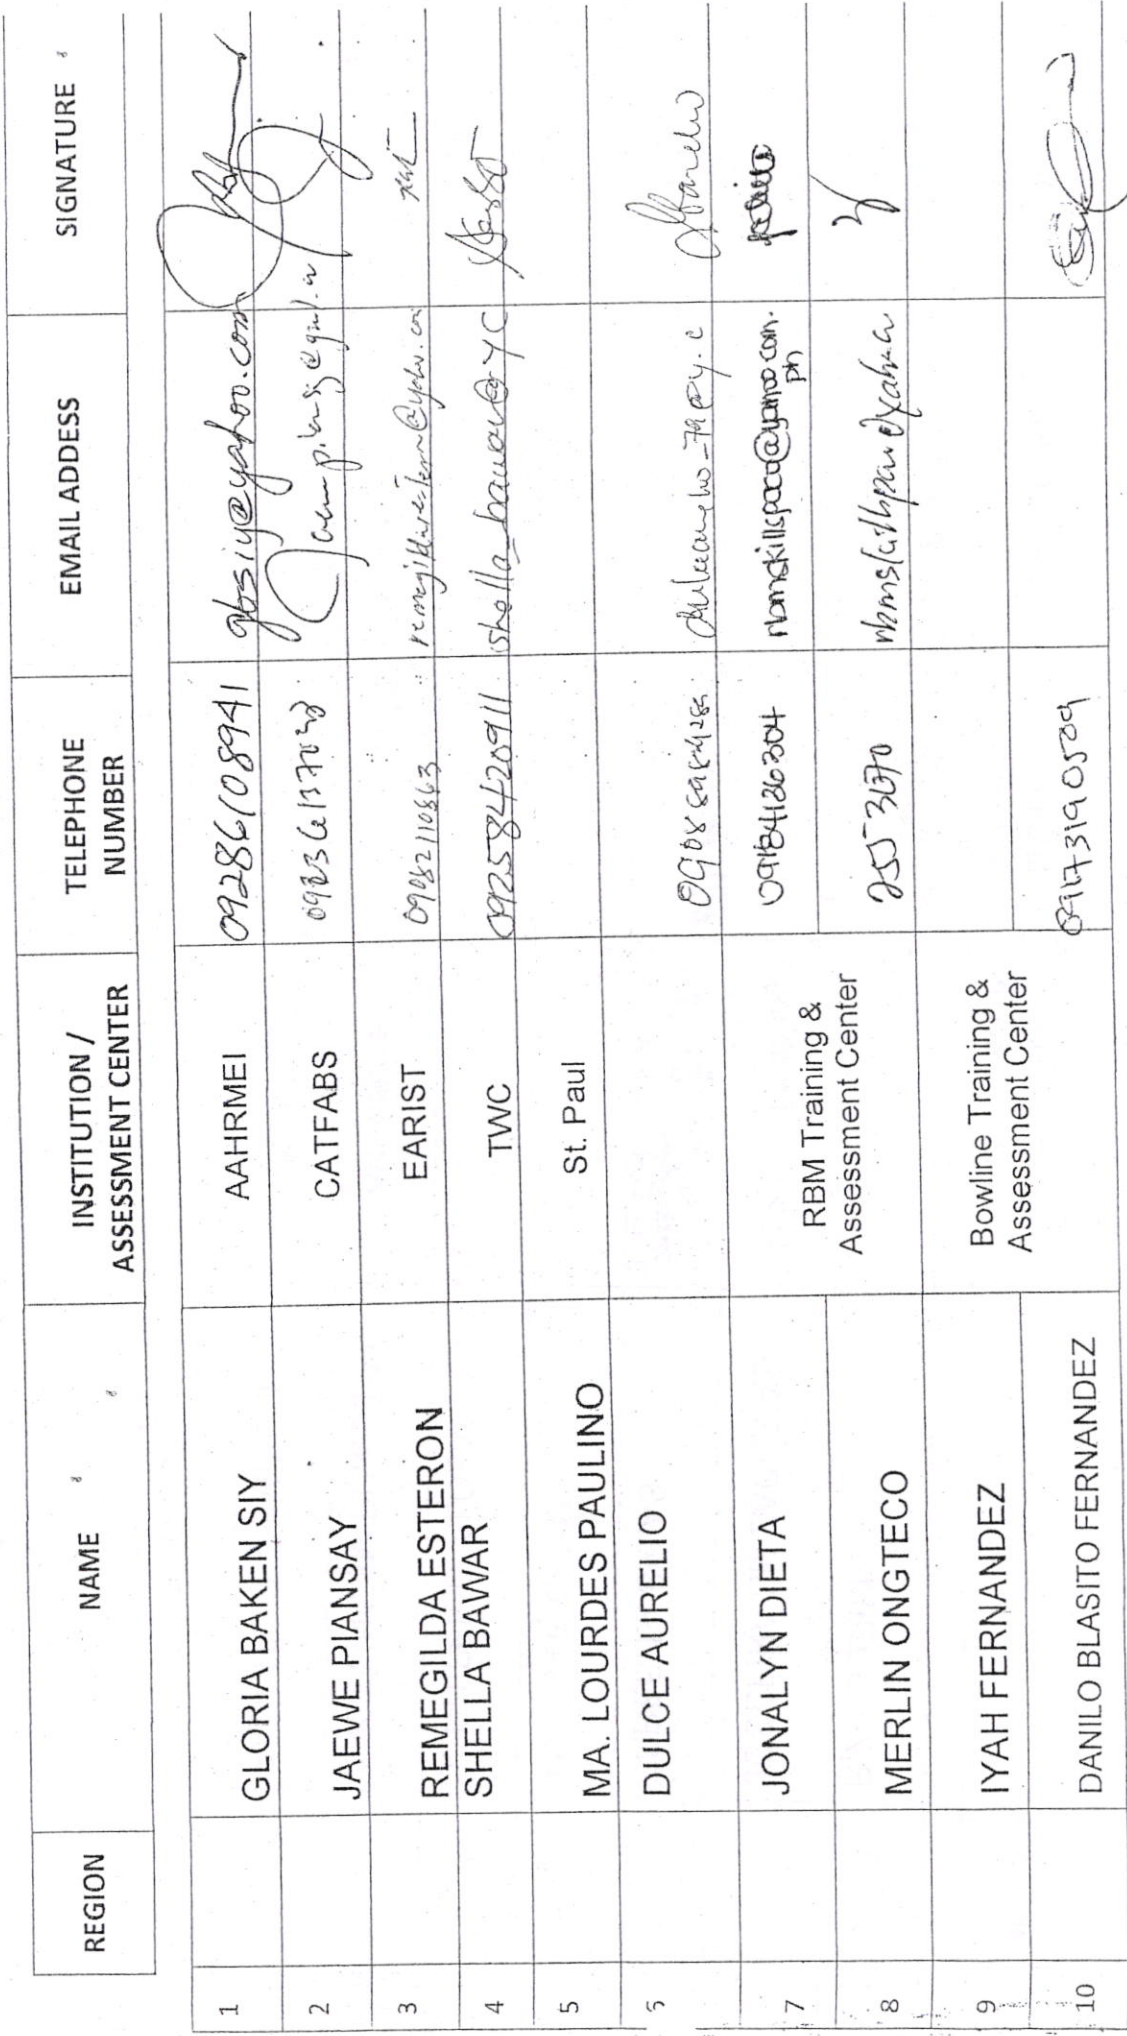 REGION NAME INSTITUTION / ASSESSMENT CENTER TELEPHONE NUMBER EMAIL ADDESS SIGNATURE
1 GLORIA BAKEN SIY AAHRMEI 09286108941 gbsiy@yahoo.com
2 JAEWE PIANSAY CATFABS
3 REMEGILDA ESTERON EARIST 09082110863
4 SHELLA BAWAR TWC 09258420911 shella_bawar@yc
5 MA. LOURDES PAULINO St. Paul
DULCE AURELIO
7 JONALYN DIETA RBM Training & Assessment Center 09184126304
8 MERLIN ONGTECO
9 IYAH FERNANDEZ Bowline Training & Assessment Center
10 DANILO BLASITO FERNANDEZ 09173190509